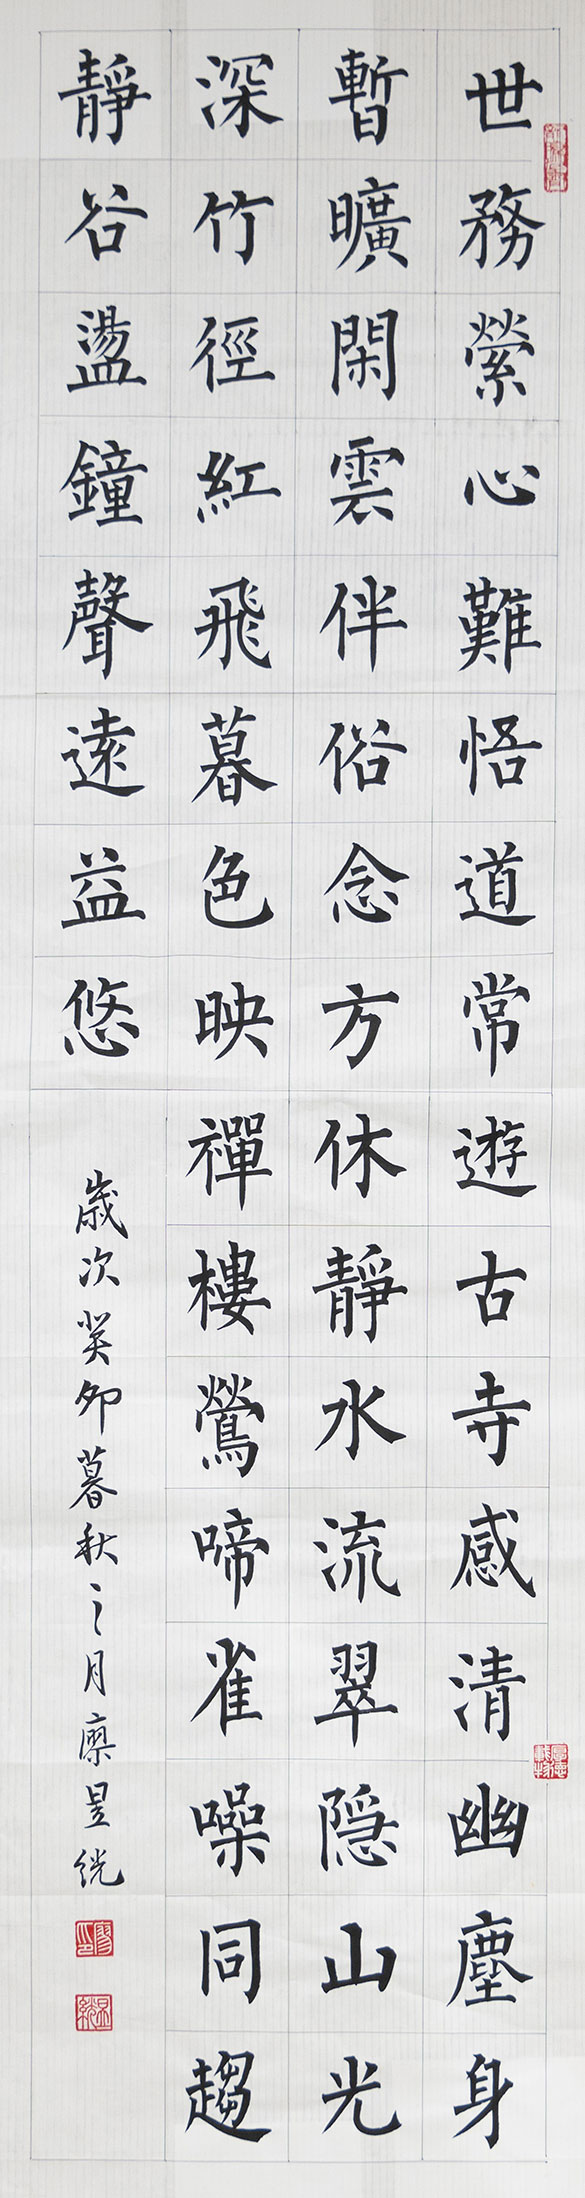 世務縈心難悟道常遊古寺感清幽塵身
暫曠閑雲伴俗念方休靜水流翠隐山光
深竹徑紅飛暮色映禪樓鶯啼雀噪同趨
靜谷盪鐘聲遠益悠
歲次癸卯暮秋之月廖昱絖
厚德載物